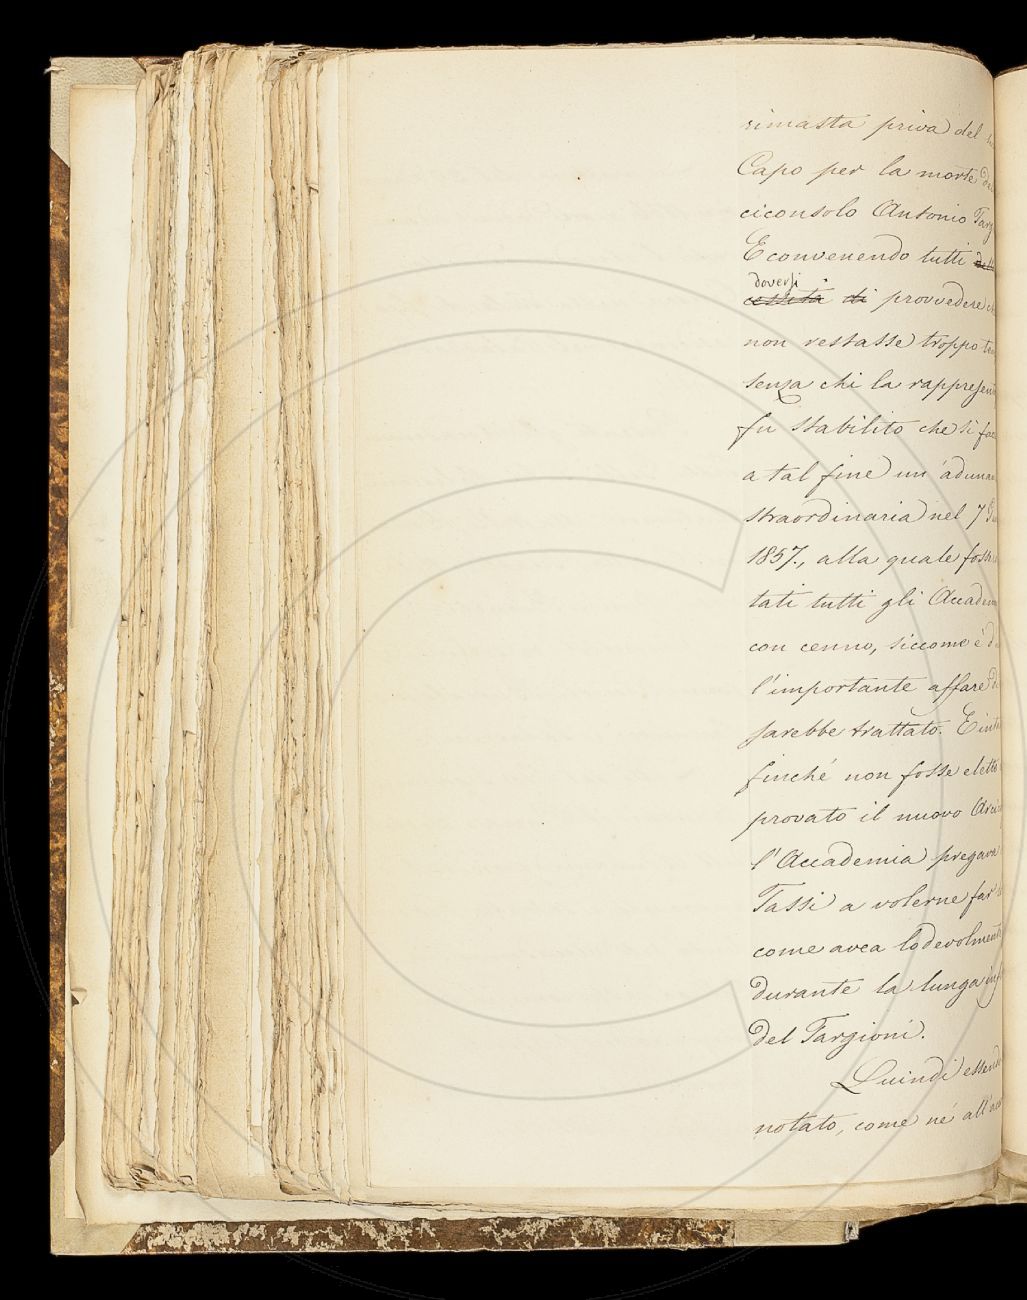 rimasta priva del
Capo per la morte
ciconsolo Antonio Targ
E convenendo tutti
doversi
cessità di provvedere
non restasse troppo
senza chi la rappresent
fu stabilito che si fac
a tal fine un'adunan
straordinaria nel 7
1857., alla quale foss
tati tutti gli Accadem
con cenno, siccome è d
l'importante affare d
sarebbe trattato. E int
finché non fosse eletto
provato il nuovo Arci
l'Accademia pregava
Tassi a volerne far
come avea lodevolment
durante la lunga inf
del Targioni.
Quindi essend
notato, come né all'a